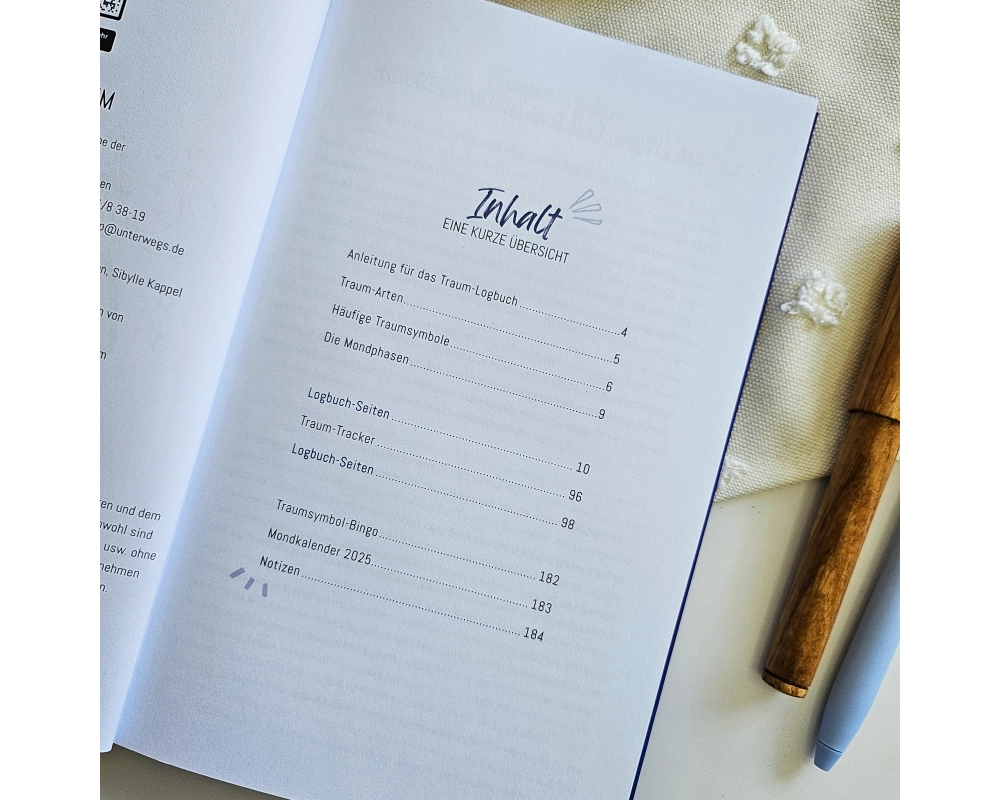 M
der
/8 38-19
@unterwegs.de
Sibylle Kappel
von
und dem
sind
usw. ohne
Inhalt
EINE KURZE ÜBERSICHT
Anleitung für das Traum-Logbuch 4
Traum-Arten 5
Häufige Traumsymbole 6
Die Mondphasen 9
Logbuch-Seiten 10
Traum-Tracker 96
Logbuch-Seiten 98
Traumsymbol-Bingo 182
Mondkalender 2025 183
Notizen 184